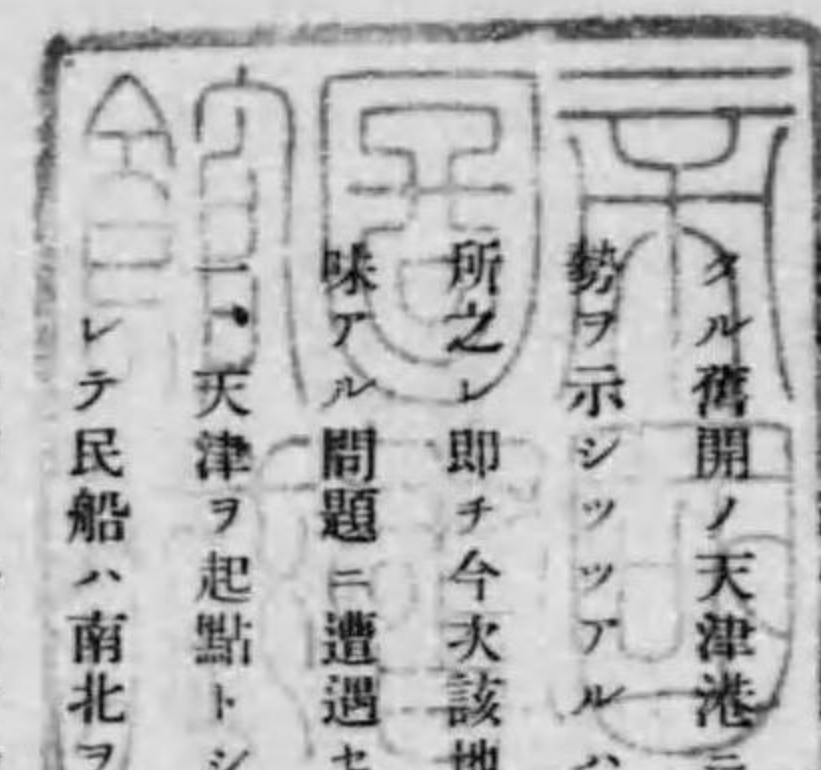 タル舊開ノ天津港ニ
勢ヲ示シツツアルハ
所之レ即チ今次該地
味アル問題ニ遭遇セ
一、天津ヲ起點トシ
レテ民船ハ南北ヲ